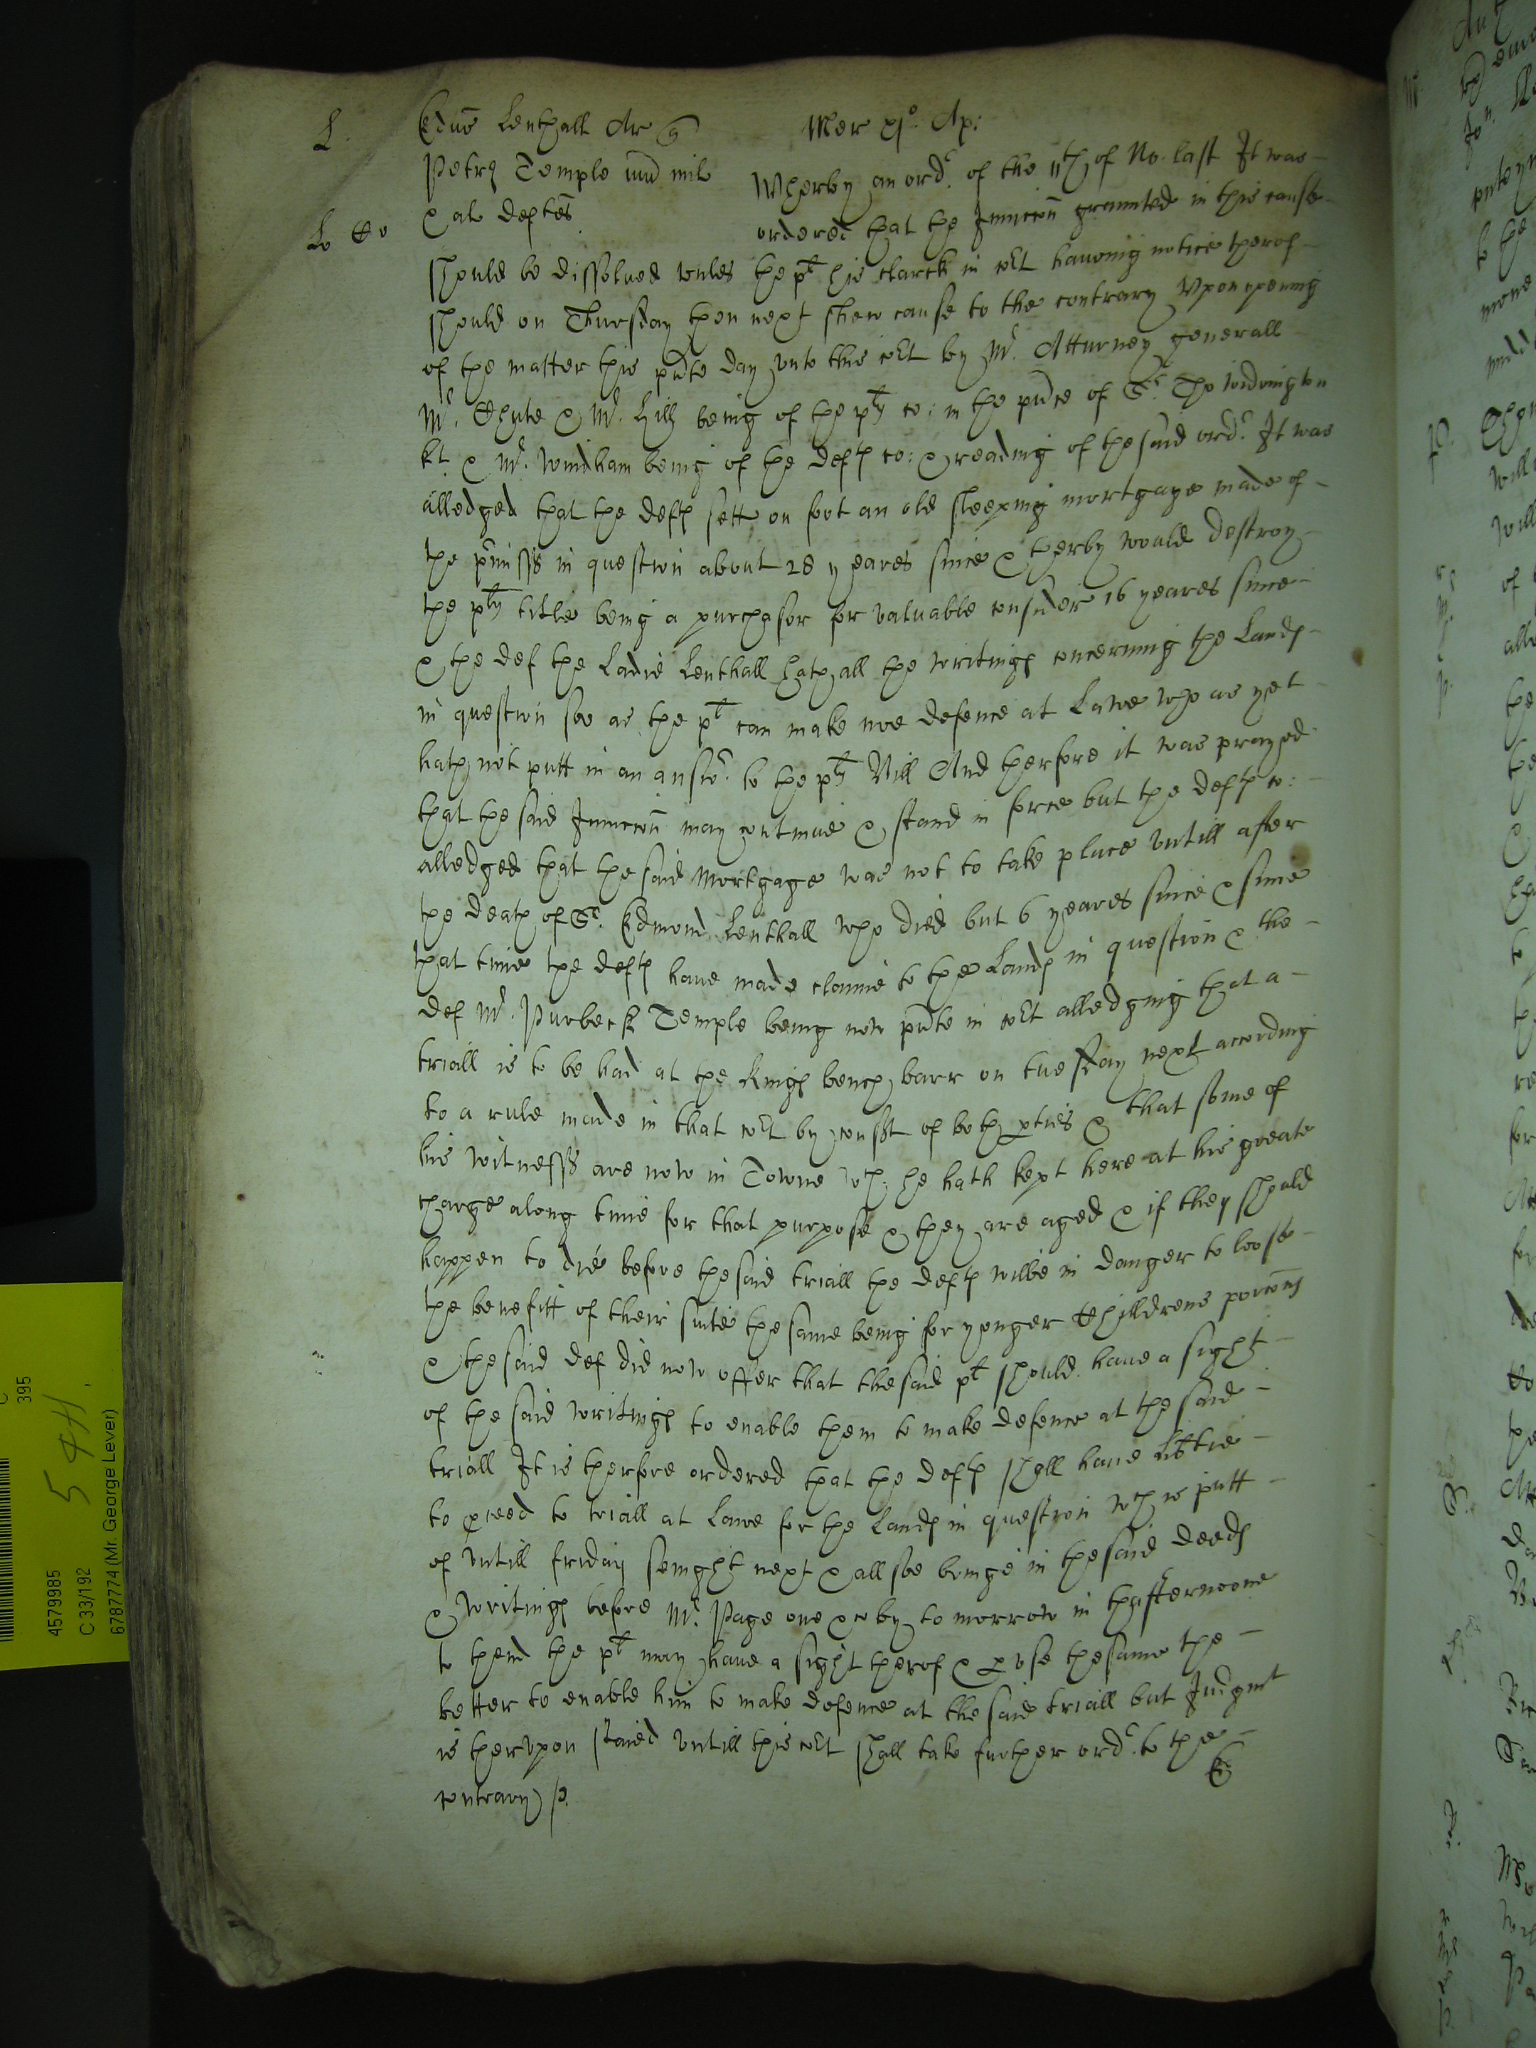 L.
Edus Lenthall Ar q
Mer xjo. Ap:
Petrus Temple mil
Whereby an ordr. of the 11th of No. last It was
& al deftes
ordered that the Iniuccon graunted in this cause
should be dissolued vnles the plt his clarck in cort haueing notice therof
should on Thursday then next shew cause to the contrary Vpon opening
of the matter this pnte day vnto this cort by Mr. Atturney generall
Mr. Chute & Mr. Hill being of the plts co: in the pnce of Sr. Tho Widrington
kt. & Mr. Windham being of the defts co: & reading of the said ordr. It was
alledged that the defts sett on foot an old sleeping mortgage made of
the pmisses in question about 28 yeares since & therby would destroy
the plts title being a purchasor for valuable consider 16 yeares since
& the def the Ladie Lenthall hath all the writings concerning the Lands
in question soe as the plt can make noe defence at Lawe who as yet
hath not putt in an answr. to the plts Bill And therfore it was prayed
that the said Iniuccon may continue & stand in force but the defts co:
alledged that the said Mortgage was not to take place vntill after
the death of Sr. Edmond Lenthall who died but 6 yeares since & since
that time the defts haue made clayme to the Lands in question & the
def Mr. Purbeck Temple being now pnte in cort alledging that a
triall is to be had at the Kings bench barr on tuesday next according
to a rule made in that cort by consst of both pties & that some of
his witnesses are now in Towne wch he hath kept here at his greate
charge along time for that purpose & they are aged & if they should
happen to die before the said triall the defts wilbe in danger to loose
the benefitt of their suite the same being for yonger Childrens porcons
& the said def did now offer that the said plt should haue a sight
of the said writings to enable them to make defence at the said
triall It is therfore ordered that the defts shall haue libtie
to pceed to triall at Lawe for the Lands in question wch is putt
of vntill friday senight next & all soe bringe in the said deeds
& writings before Mr. Page one & by to morrow in thafternoone
to thend the plt may haue a sight therof & pvse the same the
better to enable him to make defence at the said triall but Iudgmt
is thervpon staied vntill this cort shall take further ordr. to the
contrary
395
5 4H.
4579985
C 33/192
6787774 (Mr. George Lever)